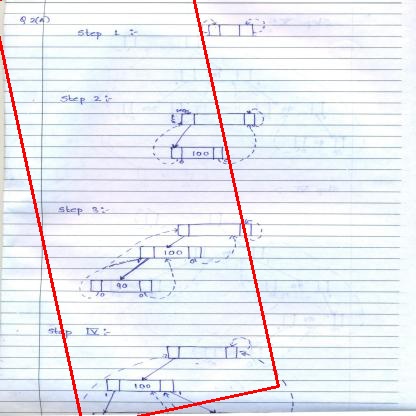 Q 2(A)
Step 1 :-
Step 2:-
100
Step 3:-
100
90
Step IV:-
100